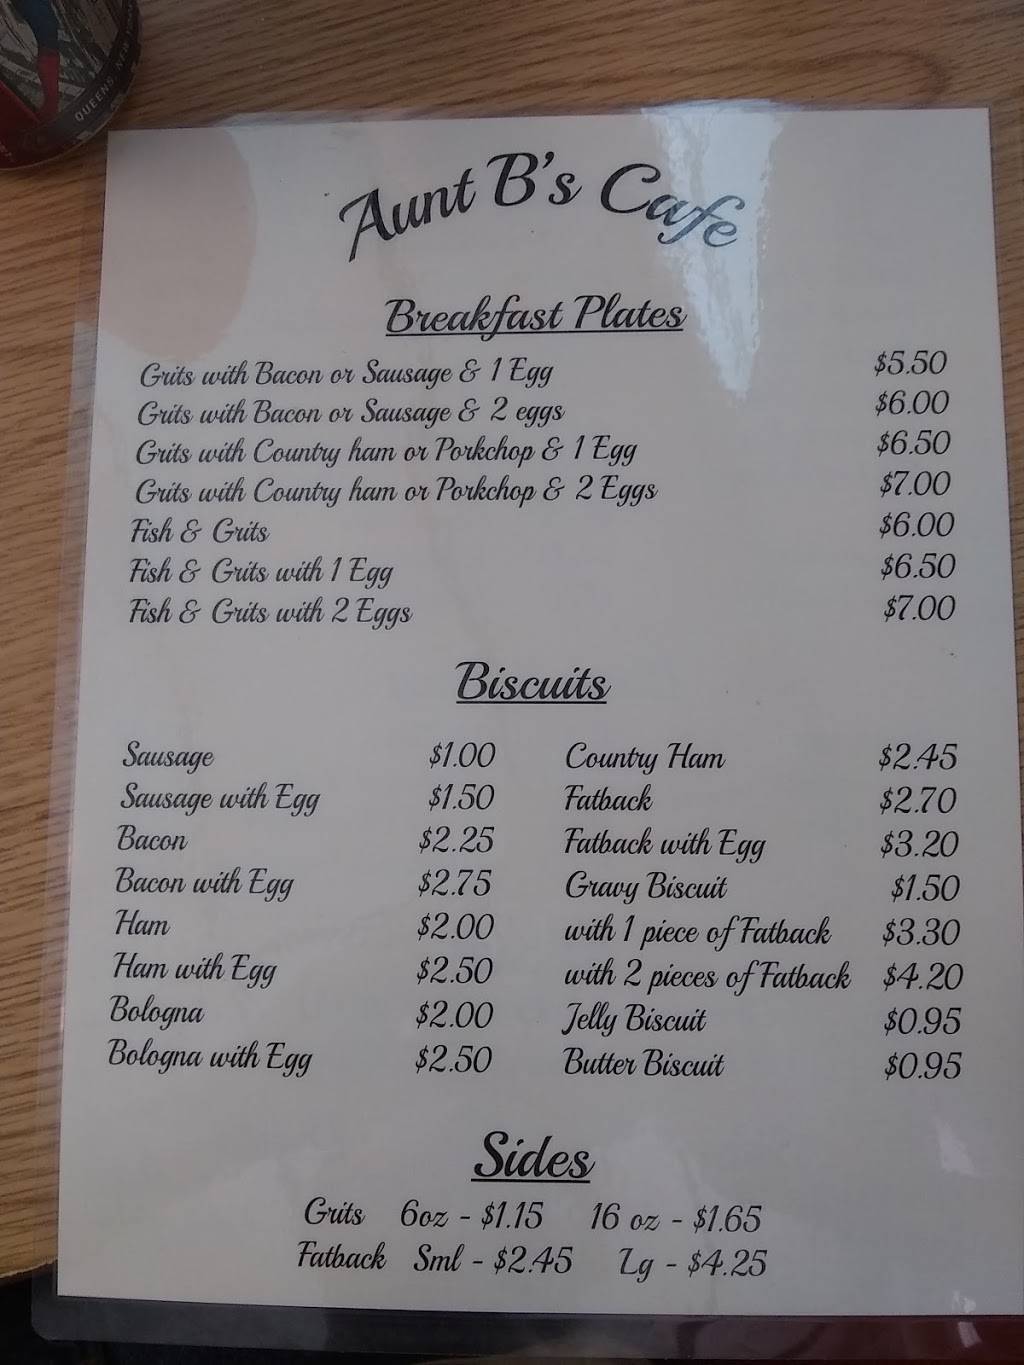 QUEENS, NEW
Aunt B's Cafe
Breakfast Plates
Grits with Bacon or Sausage & 1 Egg $5.50
Grits with Bacon or Sausage & 2 eggs $6.00
Grits with Country ham or Porkchop & 1 Egg $6.50
Grits with Country ham or Porkchop & 2 Eggs $7.00
Fish & Grits $6.00
Fish & Grits with 1 Egg $6.50
Fish & Grits with 2 Eggs $7.00
Biscuits
Sausage $1.00 Country Ham $2.45
Sausage with Egg $1.50 Fatback $2.70
Bacon $2.25 Fatback with Egg $3.20
Bacon with Egg $2.75 Gravy Biscuit $1.50
Ham $2.00 with 1 piece of Fatback $3.30
Ham with Egg $2.50 with 2 pieces of Fatback $4.20
Bologna $2.00 Jelly Biscuit $0.95
Bologna with Egg $2.50 Butter Biscuit $0.95
Sides
Grits 6oz - $1.15 16 oz - $1.65
Fatback Sml - $2.45 Lg - $4.25